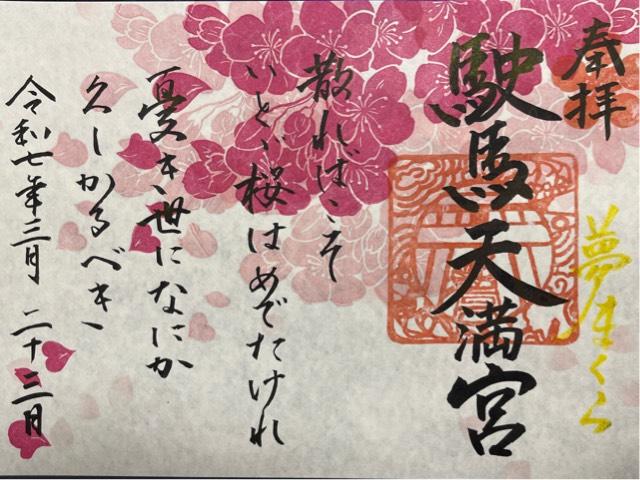 奉拝
夢まくら
駛馬天満宮
散ればこそ
いとゞ桜はめでたけれ
憂き世になにか
久しかるべき
令和七年三月 二十三日